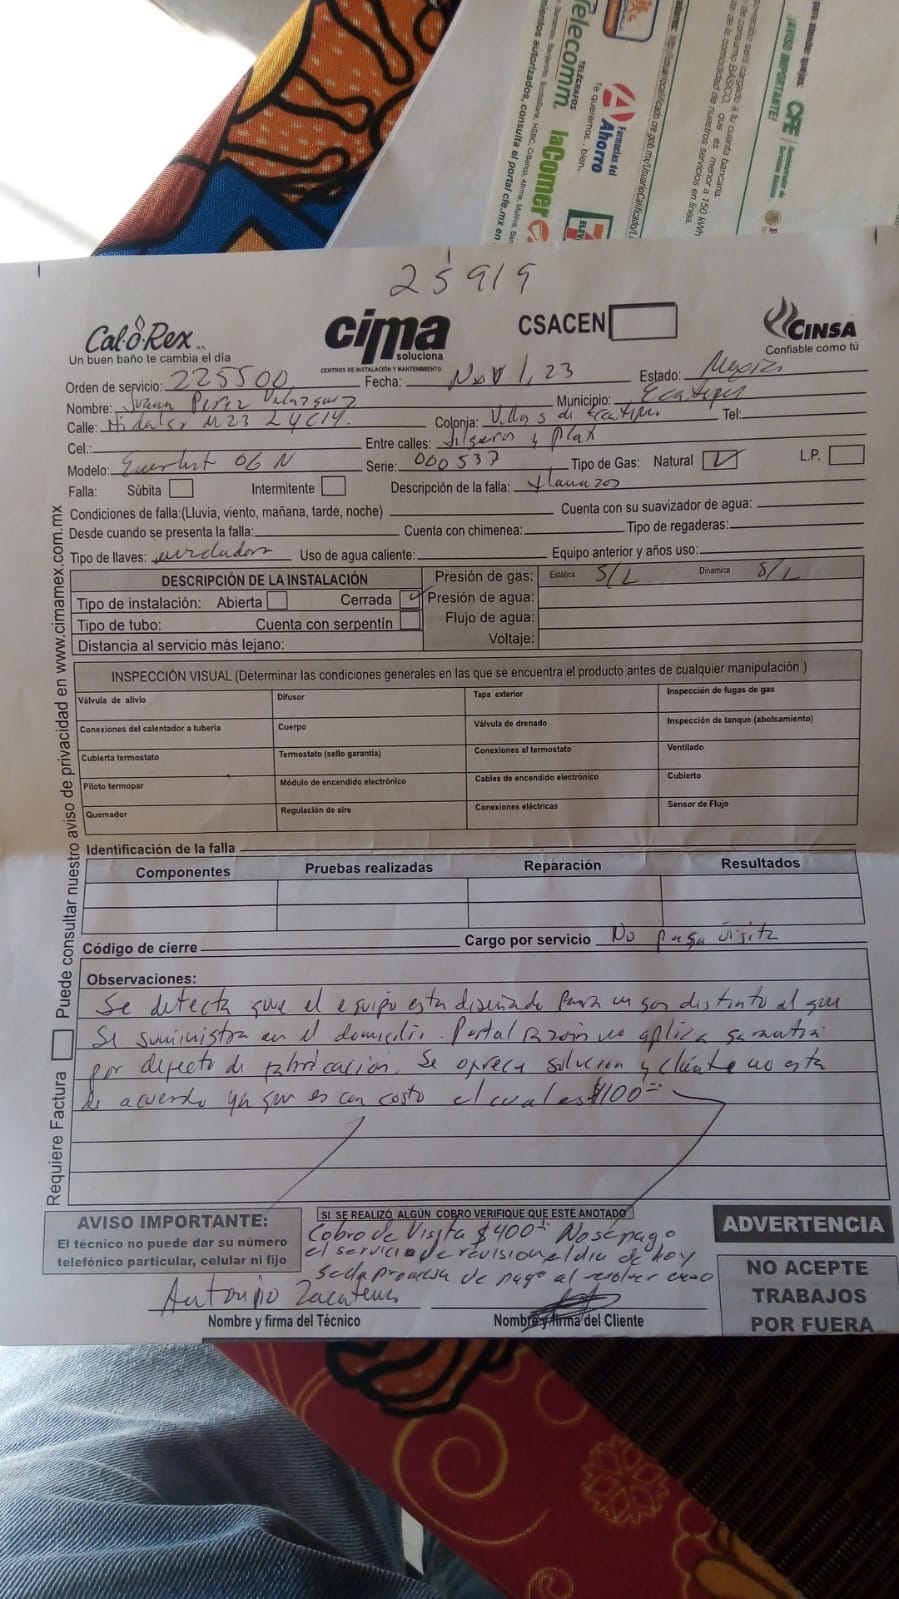 para atender quejas:
¡AVISO IMPORTANTE!
CFE
será cargado a tu cuenta bancaria.
de consumo BÁSICO, que es menor a 150 kWh
de la comodidad de nuestros servicios en línea.
Telecomm.
TELÉGRAFOS
Te queremos... bien.
Farmacias del
Ahorro
laComer
autorizados, consulta el portal cfe.mx en
25919
Cal-o-Rex
Un buen baño te cambia el día
cima
soluciona
CENTROS DE INSTALACIÓN Y MANTENIMIENTO
CSACEN
CINSA
Confiable como tú
Orden de servicio: 225500 Fecha: Nov 1, 23 Estado: Mexico
Nombre: Juana Perez Velazquez Municipio: Ecatepec
Calle: Hidalgo M23 L4C14. Colonia: Villas de Ecatepec Tel:
Cel.: Entre calles: Jilgueros y
Modelo: 06 N Serie: 000537 Tipo de Gas: Natural ✓ L.P.
Falla: Súbita Intermitente Descripción de la falla: flamazos
Condiciones de falla:(Lluvia, viento, mañana, tarde, noche) Cuenta con su suavizador de agua:
Desde cuando se presenta la falla: Cuenta con chimenea: Tipo de regaderas:
Tipo de llaves: Uso de agua caliente: Equipo anterior y años uso:
DESCRIPCIÓN DE LA INSTALACIÓN Presión de gas: Estática S/L Dinamica S/L
Tipo de instalación: Abierta Cerrada ✓ Presión de agua:
Tipo de tubo: Cuenta con serpentín Flujo de agua:
Distancia al servicio más lejano: Voltaje:
INSPECCIÓN VISUAL (Determinar las condiciones generales en las que se encuentra el producto antes de cualquier manipulación )
Válvula de alivio Difusor Tapa exterior Inspección de fugas de gas
Conexiones del calentador a tubería Cuerpo Válvula de drenado Inspección de tanque (abolsamiento)
Cubierta termostato Termostato (sello garantía) Conexiones al termostato Ventilado
Piloto termopar Módulo de encendido electrónico Cables de encendido electrónico Cubierto
Quemador Regulación de aire Conexiones eléctricas Sensor de Flujo
Identificación de la falla
Componentes Pruebas realizadas Reparación Resultados
Código de cierre Cargo por servicio No paga visita
Observaciones:
Se detecta que el equipo esta diseñado para un gas distinto al que
se suministra en el domicilio. Por tal razon no aplica garantia
por defecto de fabricación. Se ofrece solucion y cliente no esta
de acuerdo ya que es con costo el cual es $1100
Requiere Factura
Puede consultar nuestro aviso de privacidad en www.cimamex.com.mx
AVISO IMPORTANTE:
El técnico no puede dar su número
telefónico particular, celular ni fijo
SI SE REALIZÓ ALGÚN COBRO VERIFIQUE QUE ESTÉ ANOTADO
Cobro de Visita $400 No se pago
el servicio de revision el dia de hoy
se da promesa de pago al resolver caso
Antonio
Nombre y firma del Técnico
Nombre y firma del Cliente
ADVERTENCIA
NO ACEPTE
TRABAJOS
POR FUERA